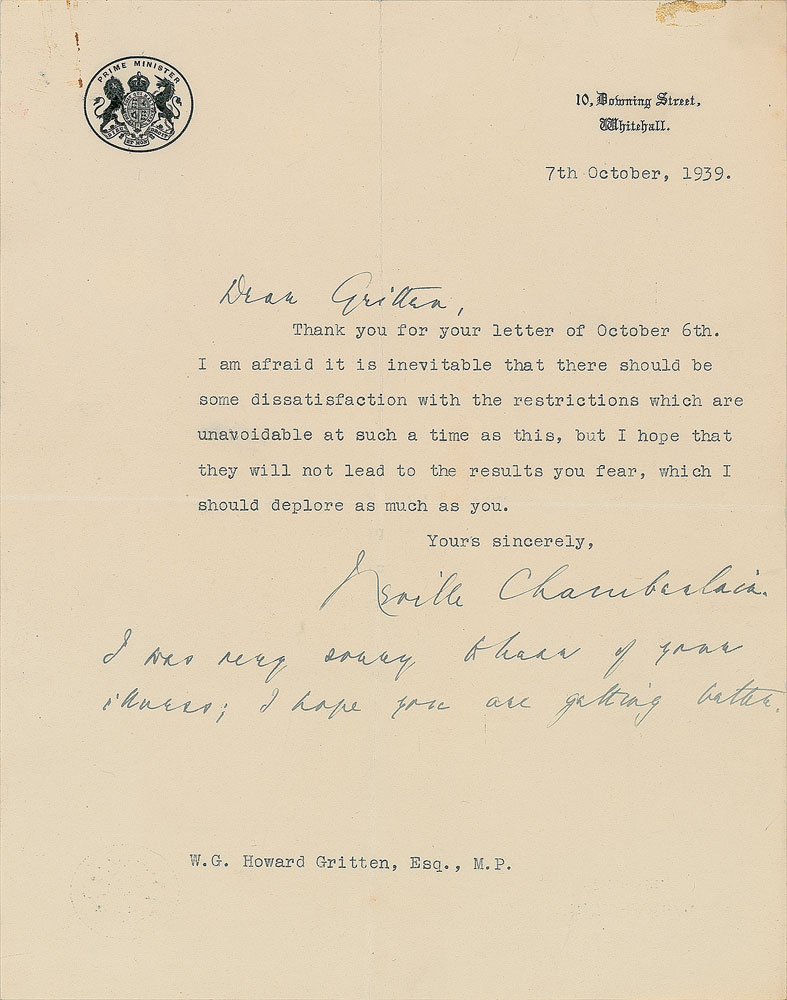 PRIME MINISTER
10, Downing Street,
Whitehall.
7th October, 1939.
Dear Gritten,
Thank you for your letter of October 6th.
I am afraid it is inevitable that there should be
some dissatisfaction with the restrictions which are
unavoidable at such a time as this, but I hope that
they will not lead to the results you fear, which I
should deplore as much as you.
Yours sincerely,
Neville Chamberlain.
I was very sorry to hear of your
illness; I hope you are getting better.
W.G. Howard Gritten, Esq., M.P.